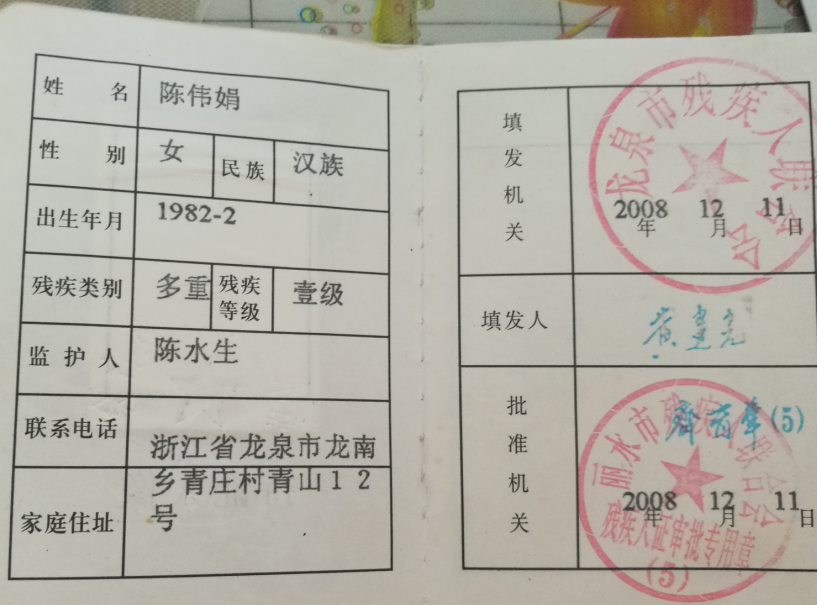 姓名 陈伟娟
性别 女 民族 汉族
出生年月 1982-2
残疾类别 多重 残疾等级 壹级
监护人 陈水生
联系电话
家庭住址 浙江省龙泉市龙南
乡青庄村青山12
号
填发机关 龙泉市残疾人联合会
2008年 12月 11日
填发人
批准机关 丽水市残疾人联合会
(5)
2008年 12月 11日
残疾人证审批专用章
(5)